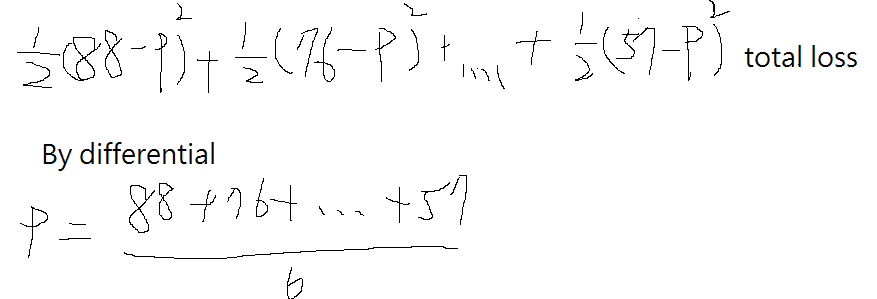 ½(88-P)² + ½(76-P)² + ... + ½(57-P)² total loss
By differential
P = (88+76+ ... +57)/6